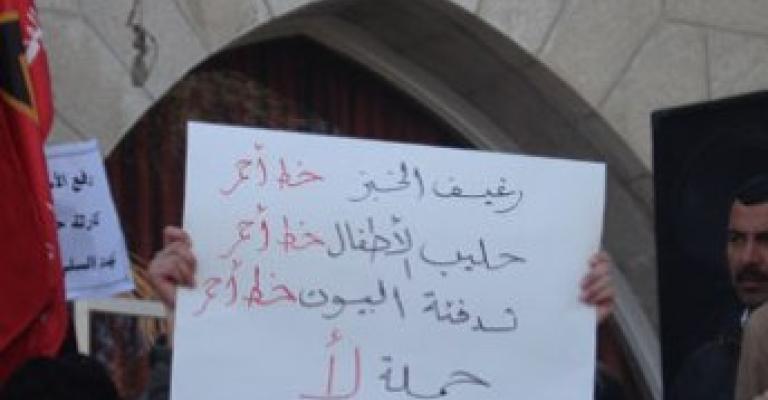 رغيف الخبز خط أحمر
حليب الأطفال خط أحمر
تدفئة البيوت خط أحمر
حملة لأ
رفع